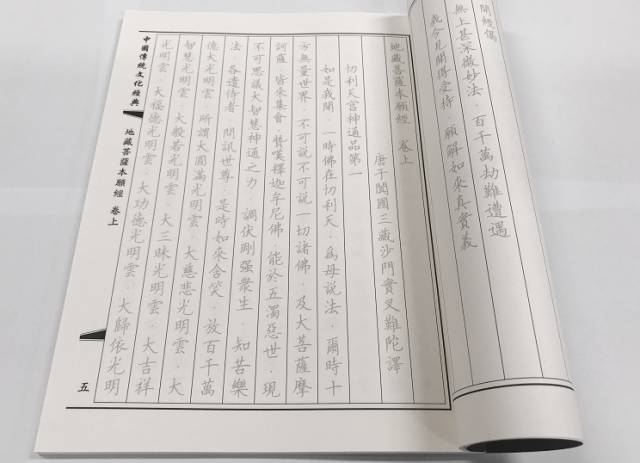 開經偈
無上甚深微妙法·百千萬劫難遭遇
我今見聞得受持·願解如來真實義
地藏菩薩本願經 卷上
唐于闐國三藏沙門實叉難陀譯
忉利天宮神通品第一
如是我聞·一時佛在忉利天·為母說法·爾時十
方無量世界·不可說不可說一切諸佛·及大菩薩摩
訶薩·皆來集會·讚嘆釋迦牟尼佛·能於五濁惡世·現
不可思議大智慧神通之力·調伏剛强眾生·知苦樂
法·各遣侍者·問訊世尊·是時如來含笑·放百千萬
億大光明雲·所謂大圓滿光明雲·大慈悲光明雲·大
智慧光明雲·大般若光明雲·大三昧光明雲·大吉祥
光明雲·大福德光明雲·大功德光明雲·大歸依光明
中國傳統文化經典
地藏菩薩本願經 卷上
五